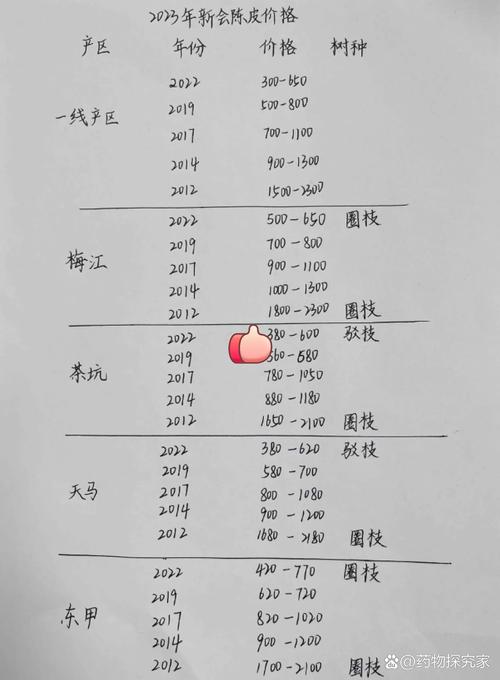 2023年新会陈皮价格
产区 年份 价格 树种
2022 300-650
2019 500-800
一线产区 2017 700-1100
2014 900-1300
2012 1500-2300
2022 500-650 圈枝
2019 700-800
梅江 2017 900-1100
2014 1000-1300
2012 1800-2300 圈枝
2022 380-600 驳枝
2019 560-580
茶坑 2017 780-1050
2014 880-1180
2012 1650-2100 圈枝
2022 380-620 驳枝
2019 580-700
天马 2017 800-1080
2014 900-1200
2012 1680-2180 圈枝
2022 420-770 圈枝
2019 620-720
东甲 2017 820-1020
2014 900-1200
2012 1700-2100 圈枝
@药物探究家